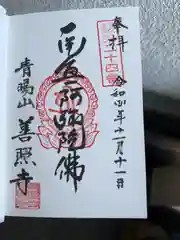 奉拝
令和四年十一月十一日
南無阿弥陀佛
青陽山
善照寺